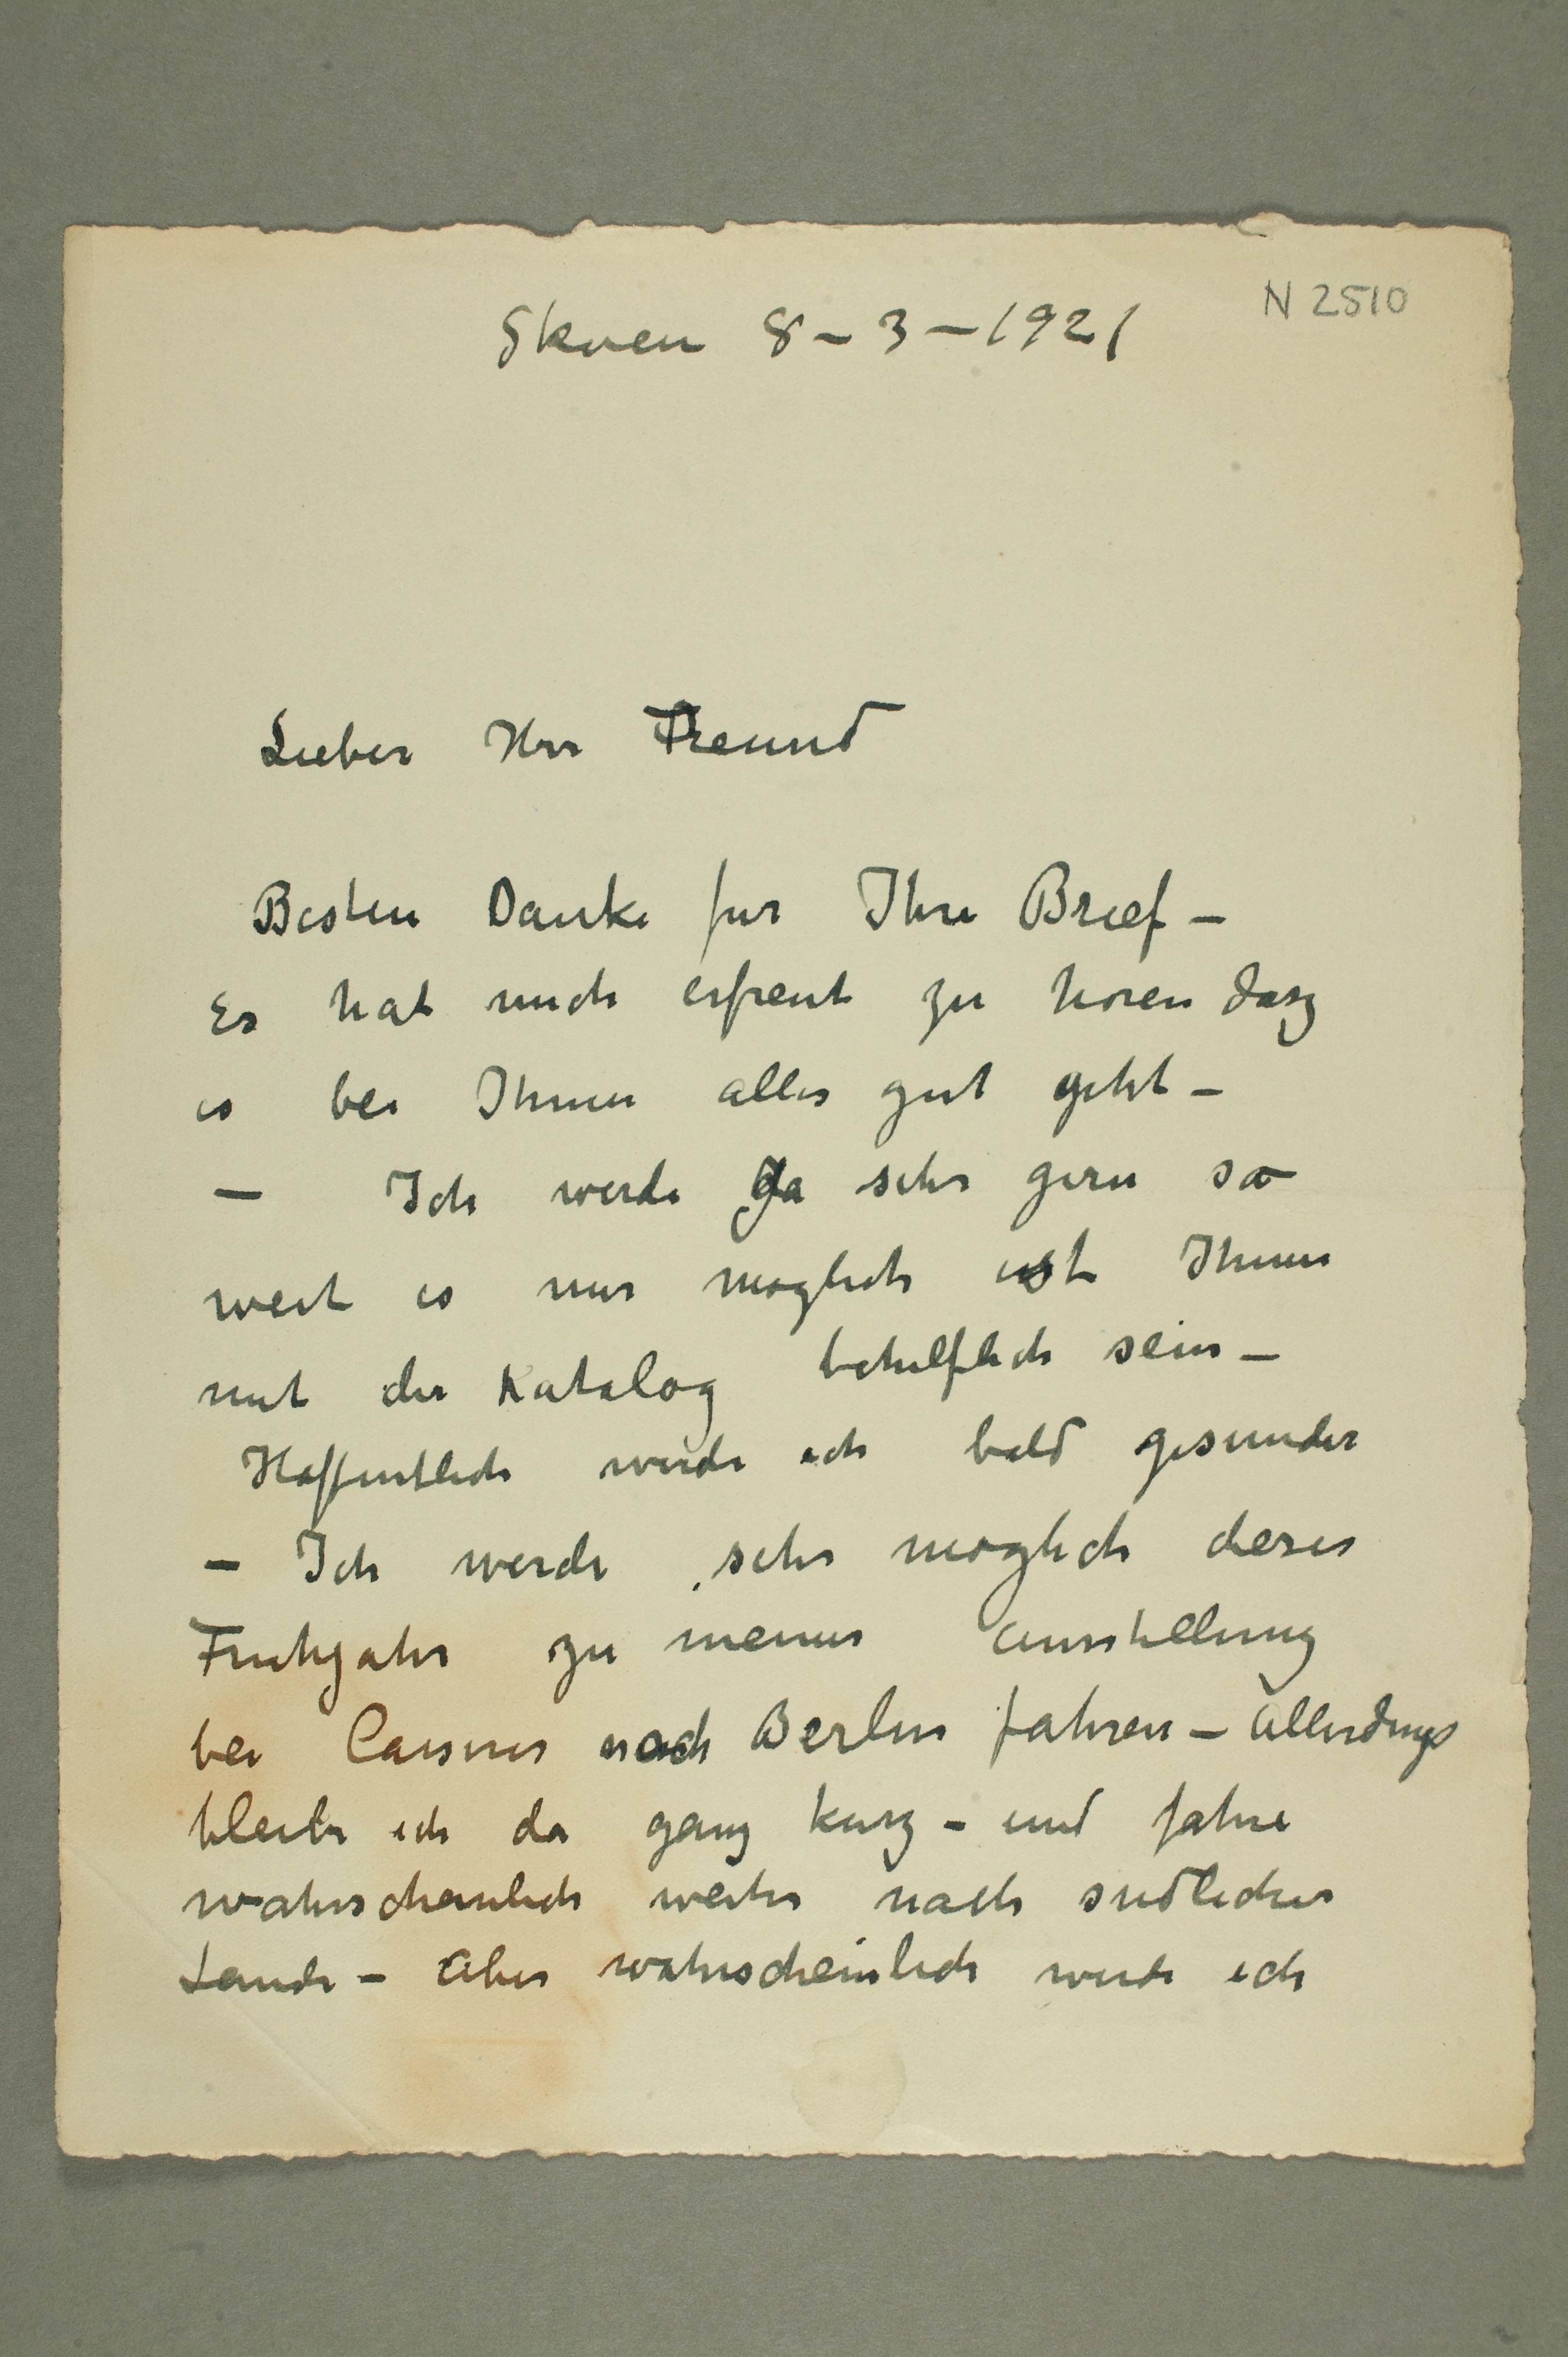 N 2510
Skøen 8 – 3 – 1921
Lieber Herr Freund
Besten Danke fur Ihre Brief –
Es hat mich erfreut zu horen dasz
es bei Ihnen alles gut geht –
– Ich werde ja sehr gern so
weit es nur moglich ist Ihnen
mit der Katalog behulflich sein –
Hoffentlich werde ich bald gesunder
– Ich werde sehr moglich dieses
Fruhjahr zu meiner Ausstellung
bei Cassirer nach Berlin fahren – Allerdings
bleibe ich da ganz kurz – und fahre
wahrscheinlich weiter nach sudlicher
Lande – Aber wahrscheinlich werde ich